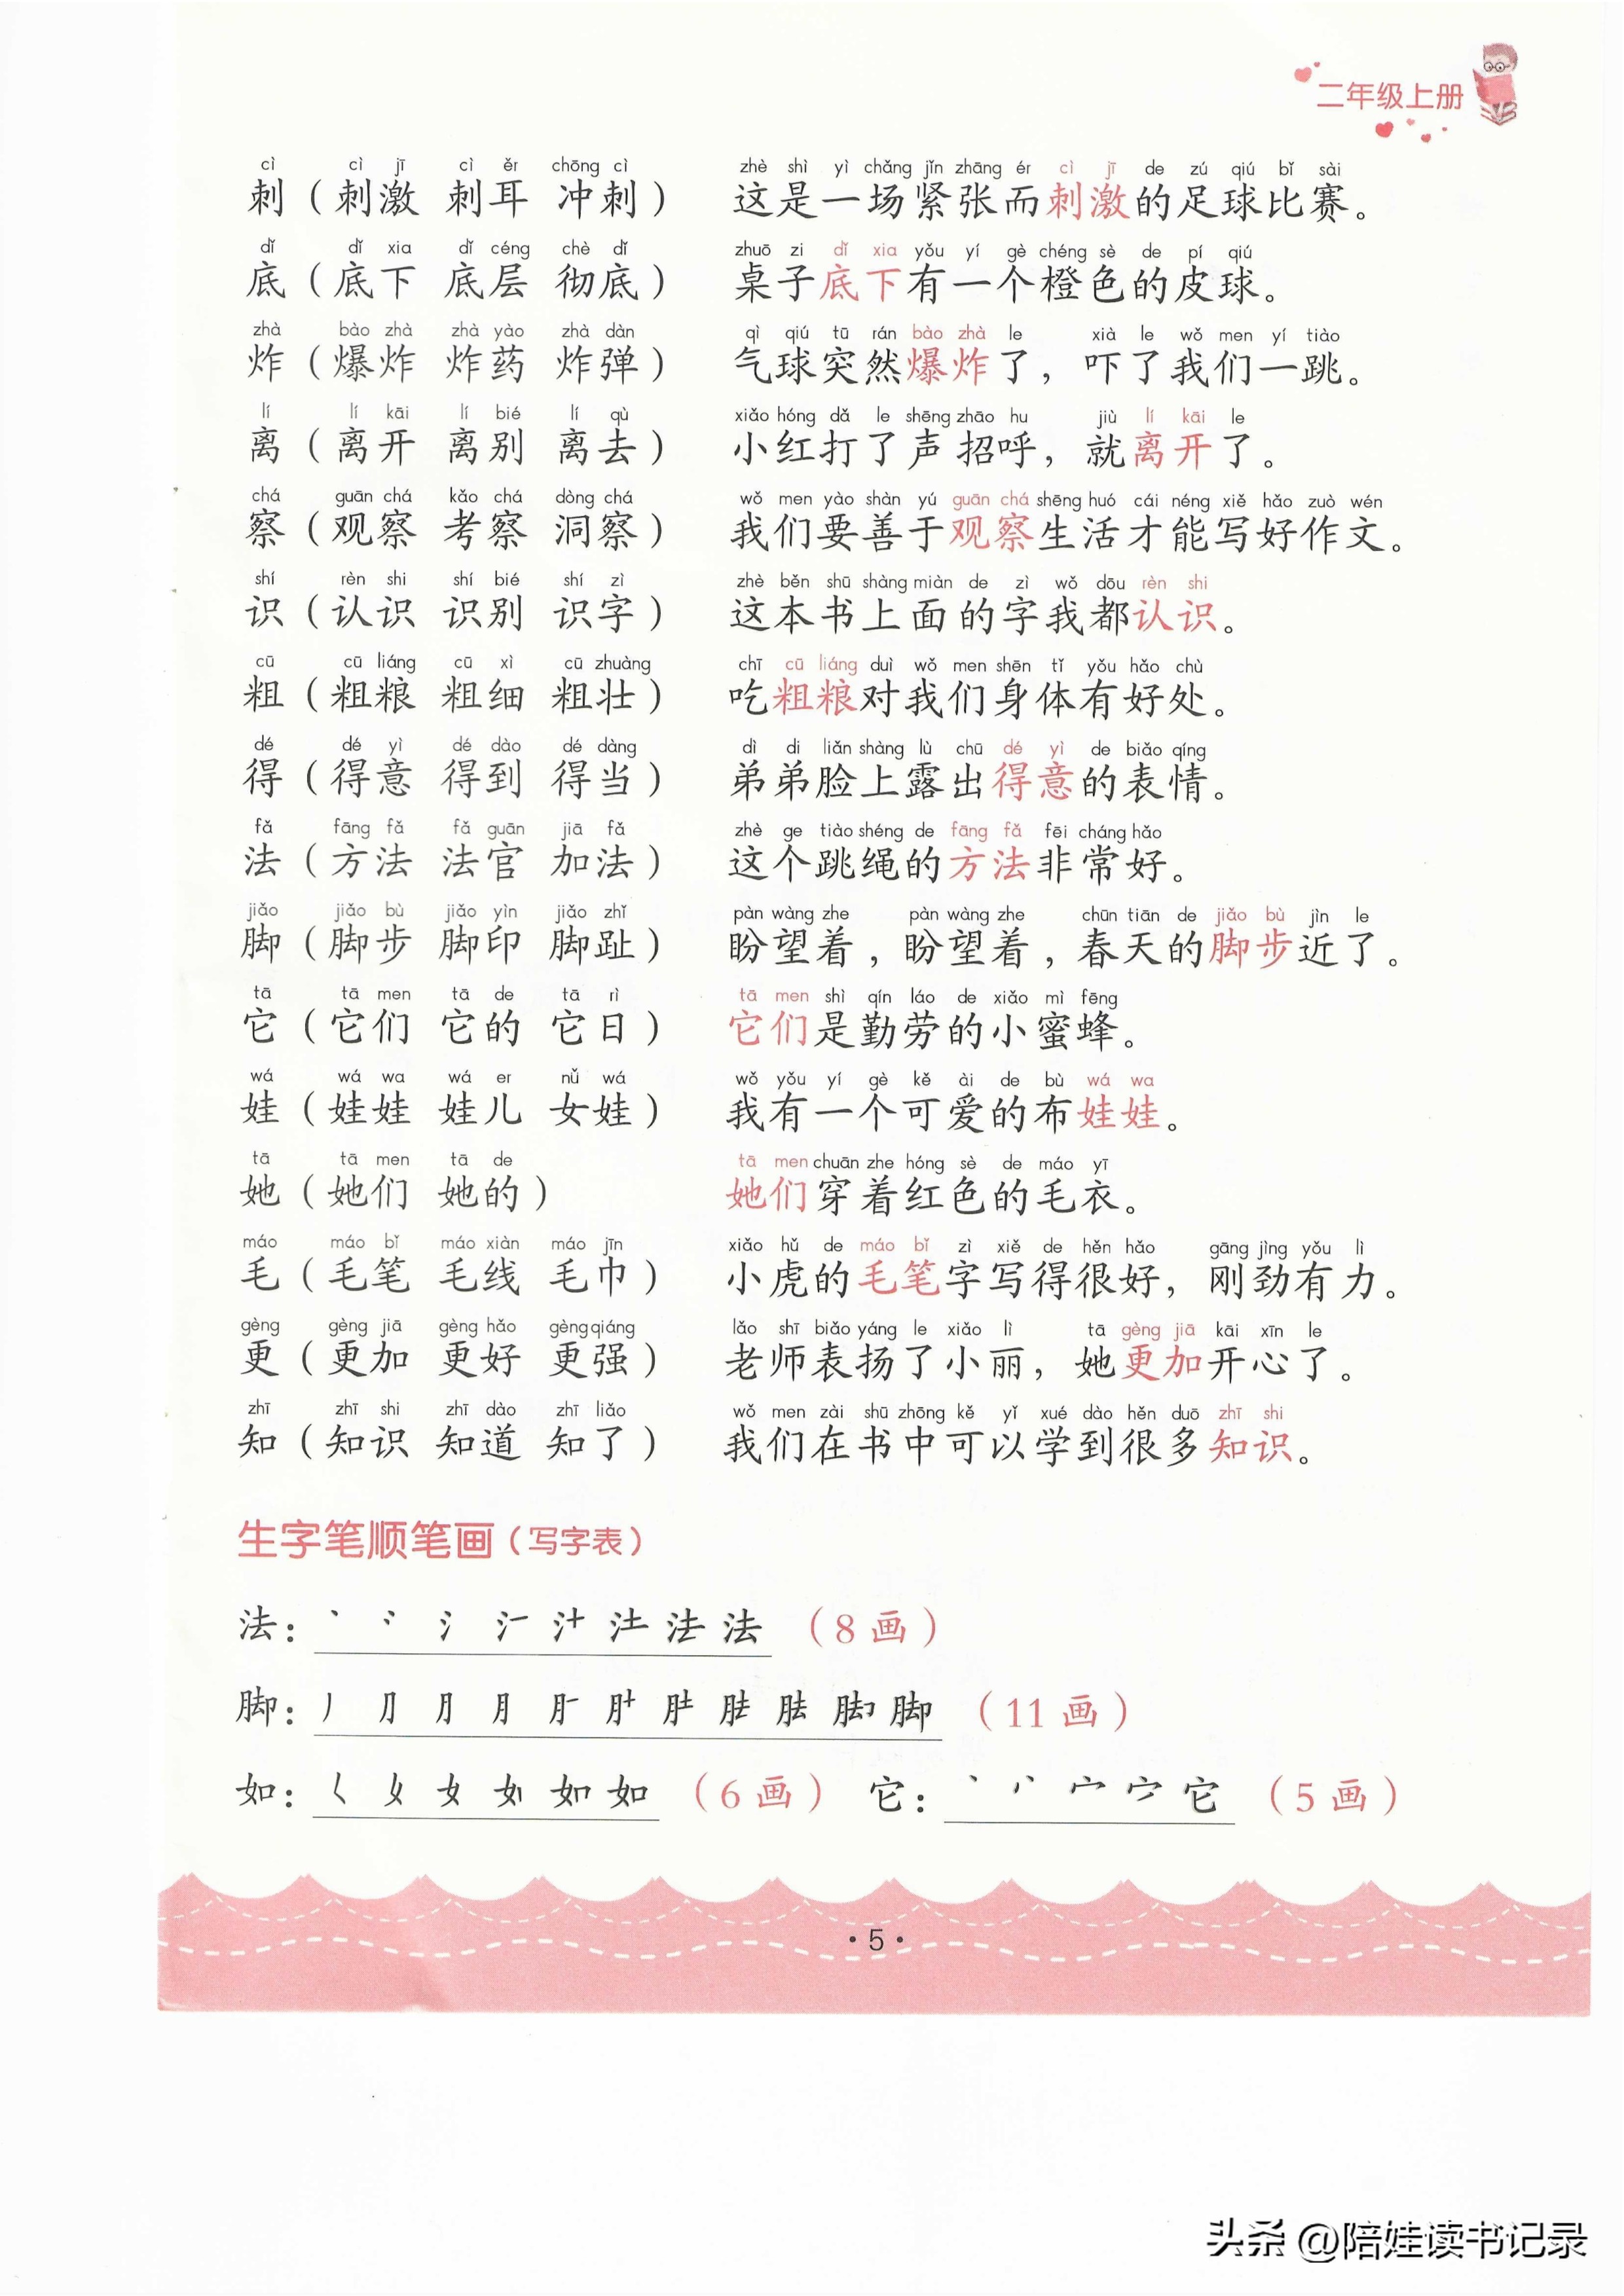 二年级上册
cì cì jī cì ěr chōng cì zhè shì yì chǎng jǐn zhāng ér cì jī de zú qiú bǐ sài
刺（刺激 刺耳 冲刺） 这是一场紧张而刺激的足球比赛。
dǐ dǐ xia dǐ céng chè dǐ zhuō zi dǐ xia yǒu yí gè chéng sè de pí qiú
底（底下 底层 彻底） 桌子底下有一个橙色的皮球。
zhà bào zhà zhà yào zhà dàn qì qiú tū rán bào zhà le xià le wǒ men yí tiào
炸（爆炸 炸药 炸弹） 气球突然爆炸了，吓了我们一跳。
lí lí kāi lí bié lí qù xiǎo hóng dǎ le shēng zhāo hu jiù lí kāi le
离（离开 离别 离去） 小红打了声招呼，就离开了。
chá guān chá kǎo chá dòng chá wǒ men yào shàn yú guān chá shēng huó cái néng xiě hǎo zuò wén
察（观察 考察 洞察） 我们要善于观察生活才能写好作文。
shí rèn shi shí bié shí zì zhè běn shū shàng miàn de zì wǒ dōu rèn shi
识（认识 识别 识字） 这本书上面的字我都认识。
cū cū liáng cū xì cū zhuàng chī cū liáng duì wǒ men shēn tǐ yǒu hǎo chù
粗（粗粮 粗细 粗壮） 吃粗粮对我们身体有好处。
dé dé yì dé dào dé dàng dì di liǎn shàng lù chū dé yì de biǎo qíng
得（得意 得到 得当） 弟弟脸上露出得意的表情。
fǎ fāng fǎ fǎ guān jiā fǎ zhè ge tiào shéng de fāng fǎ fēi cháng hǎo
法（方法 法官 加法） 这个跳绳的方法非常好。
jiǎo jiǎo bù jiǎo yìn jiǎo zhǐ pàn wàng zhe pàn wàng zhe chūn tiān de jiǎo bù jìn le
脚（脚步 脚印 脚趾） 盼望着，盼望着，春天的脚步近了。
tā tā men tā de tā rì tā men shì qín láo de xiǎo mì fēng
它（它们 它的 它日） 它们是勤劳的小蜜蜂。
wá wá wa wá er nǚ wá wǒ yǒu yí gè kě ài de bù wá wa
娃（娃娃 娃儿 女娃） 我有一个可爱的布娃娃。
tā tā men tā de tā men chuān zhe hóng sè de máo yī
她（她们 她的） 她们穿着红色的毛衣。
máo máo bǐ máo xiàn máo jīn xiǎo hǔ de máo bǐ zì xiě de hěn hǎo gāng jìng yǒu lì
毛（毛笔 毛线 毛巾） 小虎的毛笔字写得很好，刚劲有力。
gèng gèng jiā gèng hǎo gèng qiáng lǎo shī biǎo yáng le xiǎo lì tā gèng jiā kāi xīn le
更（更加 更好 更强） 老师表扬了小丽，她更加开心了。
zhī zhī shi zhī dào zhī liǎo wǒ men zài shū zhōng kě yǐ xué dào hěn duō zhī shi
知（知识 知道 知了） 我们在书中可以学到很多知识。
生字笔顺笔画（写字表）
法： 法（8画）
脚： 脚（11画）
如： 如（6画） 它： 它（5画）
·5·
头条 @陪娃读书记录